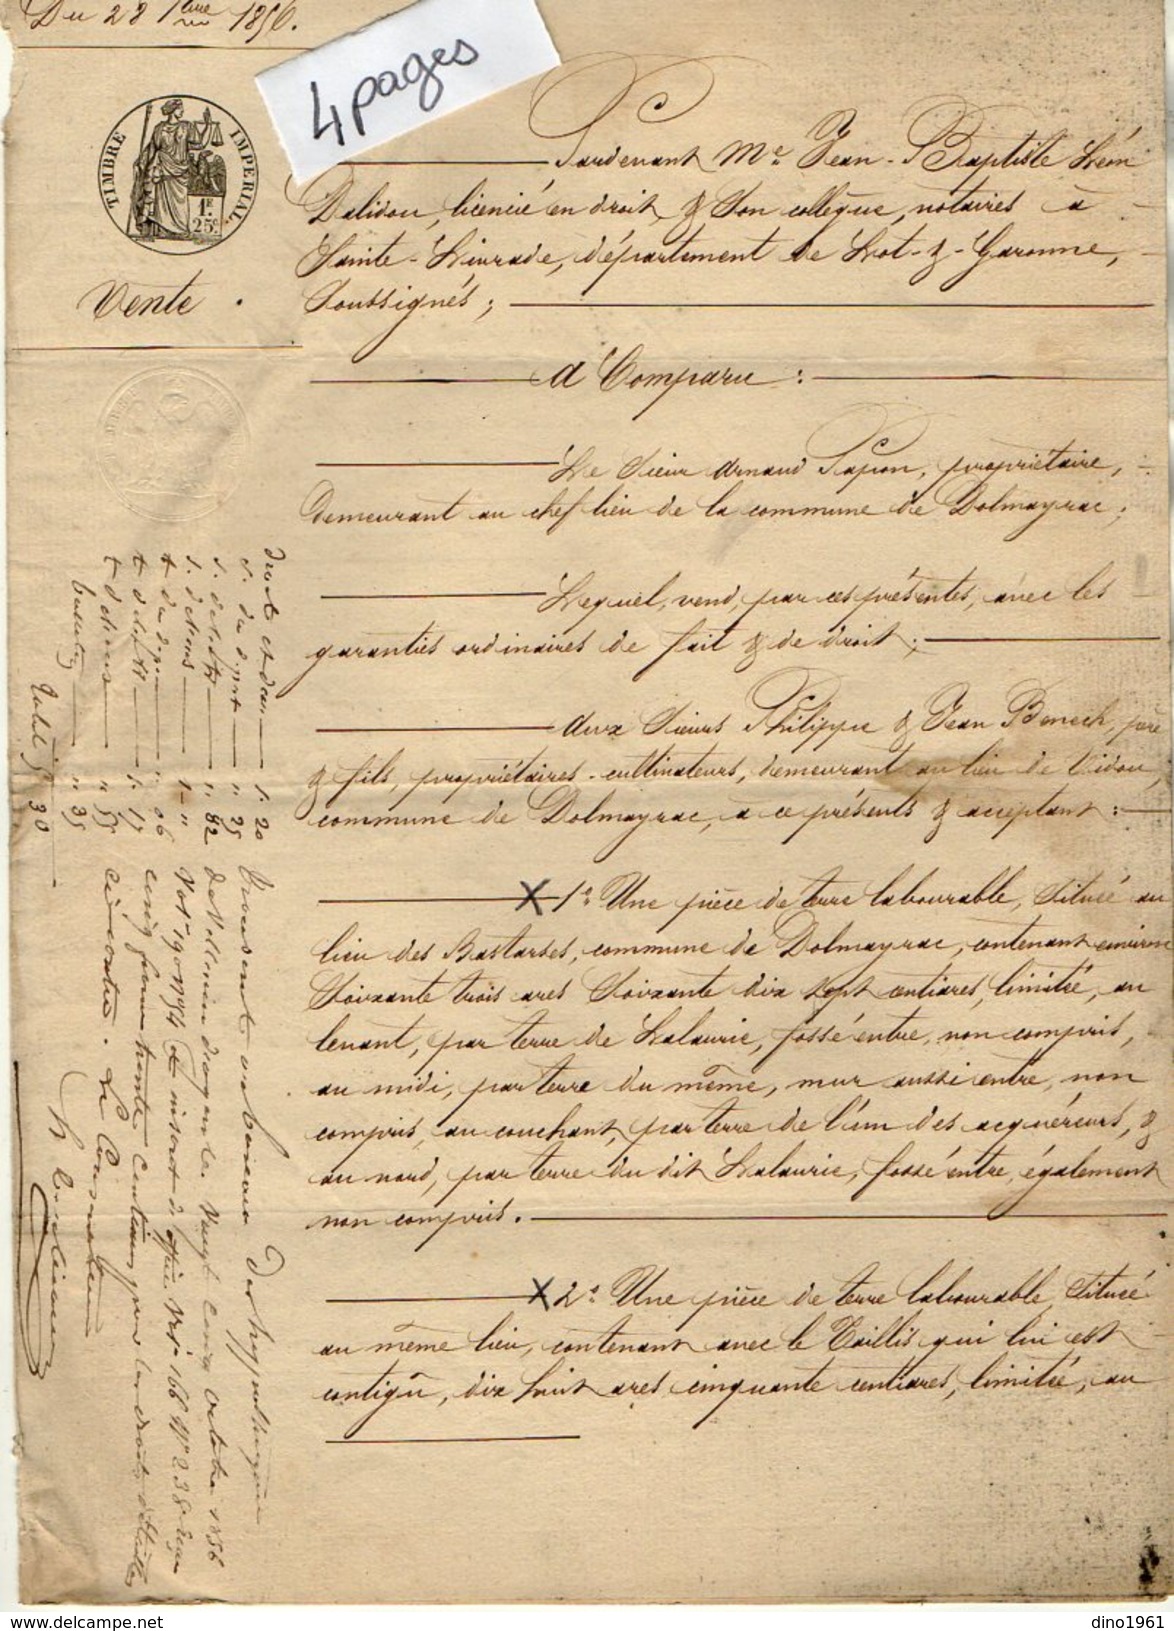 Du 28 7bre 1856.
4 pages
TIMBRE IMPERIAL
1f. 25c.
Vente .
Pardevant Me Jean-Baptiste Léon
Dalidou, licencié en droit, & Son collègue, notaires à
Sainte-Livrade, département de Lot-&-Garonne,
Soussignés ;
a Comparu :
Le Sieur Arnaud Papon, propriétaire,
demeurant au chef lieu de la commune de Dolmayrac ;
Lequel, vend, par ces présentes, avec les
garanties ordinaires de fait & de droit ;
Aux Sieurs Philippe & Jean Benech, père
& fils, propriétaires-cultivateurs, demeurant au lieu de Vidou,
commune de Dolmayrac, a ce présents & acceptant :
X 1° Une pièce de terre labourable, Située au
lieu des Bastarses, commune de Dolmayrac, contenant environ
Soixante trois ares Soixante dix sept centiares, limitée, au
levant, par terre de Lalaurie, fossé entre, non compris,
au midi, par terre du même, mur aussi entre, non
compris, au couchant, par terre de l'un des acquéreurs, &
au nord, par terre du dit Lalaurie, fossé entre, également
non compris.
X 2° Une pièce de terre labourable, Située
au même lieu, contenant avec le Taillis qui lui est
contigu, dix huit ares cinquante centiares, limitée, au
1. 20
" 25
" 82
1 - "
" 06
1. 17
" 55
" 35
Total 5 30
Transcrit au bureau des hypothèques
de Villeneuve d'agen le Vingt cinq octobre 1856
Vol 190 n° 94
cinq francs trente Centimes pour les droits détaillés
ci contre. Le Conservateur
dino1961
www.delcampe.net